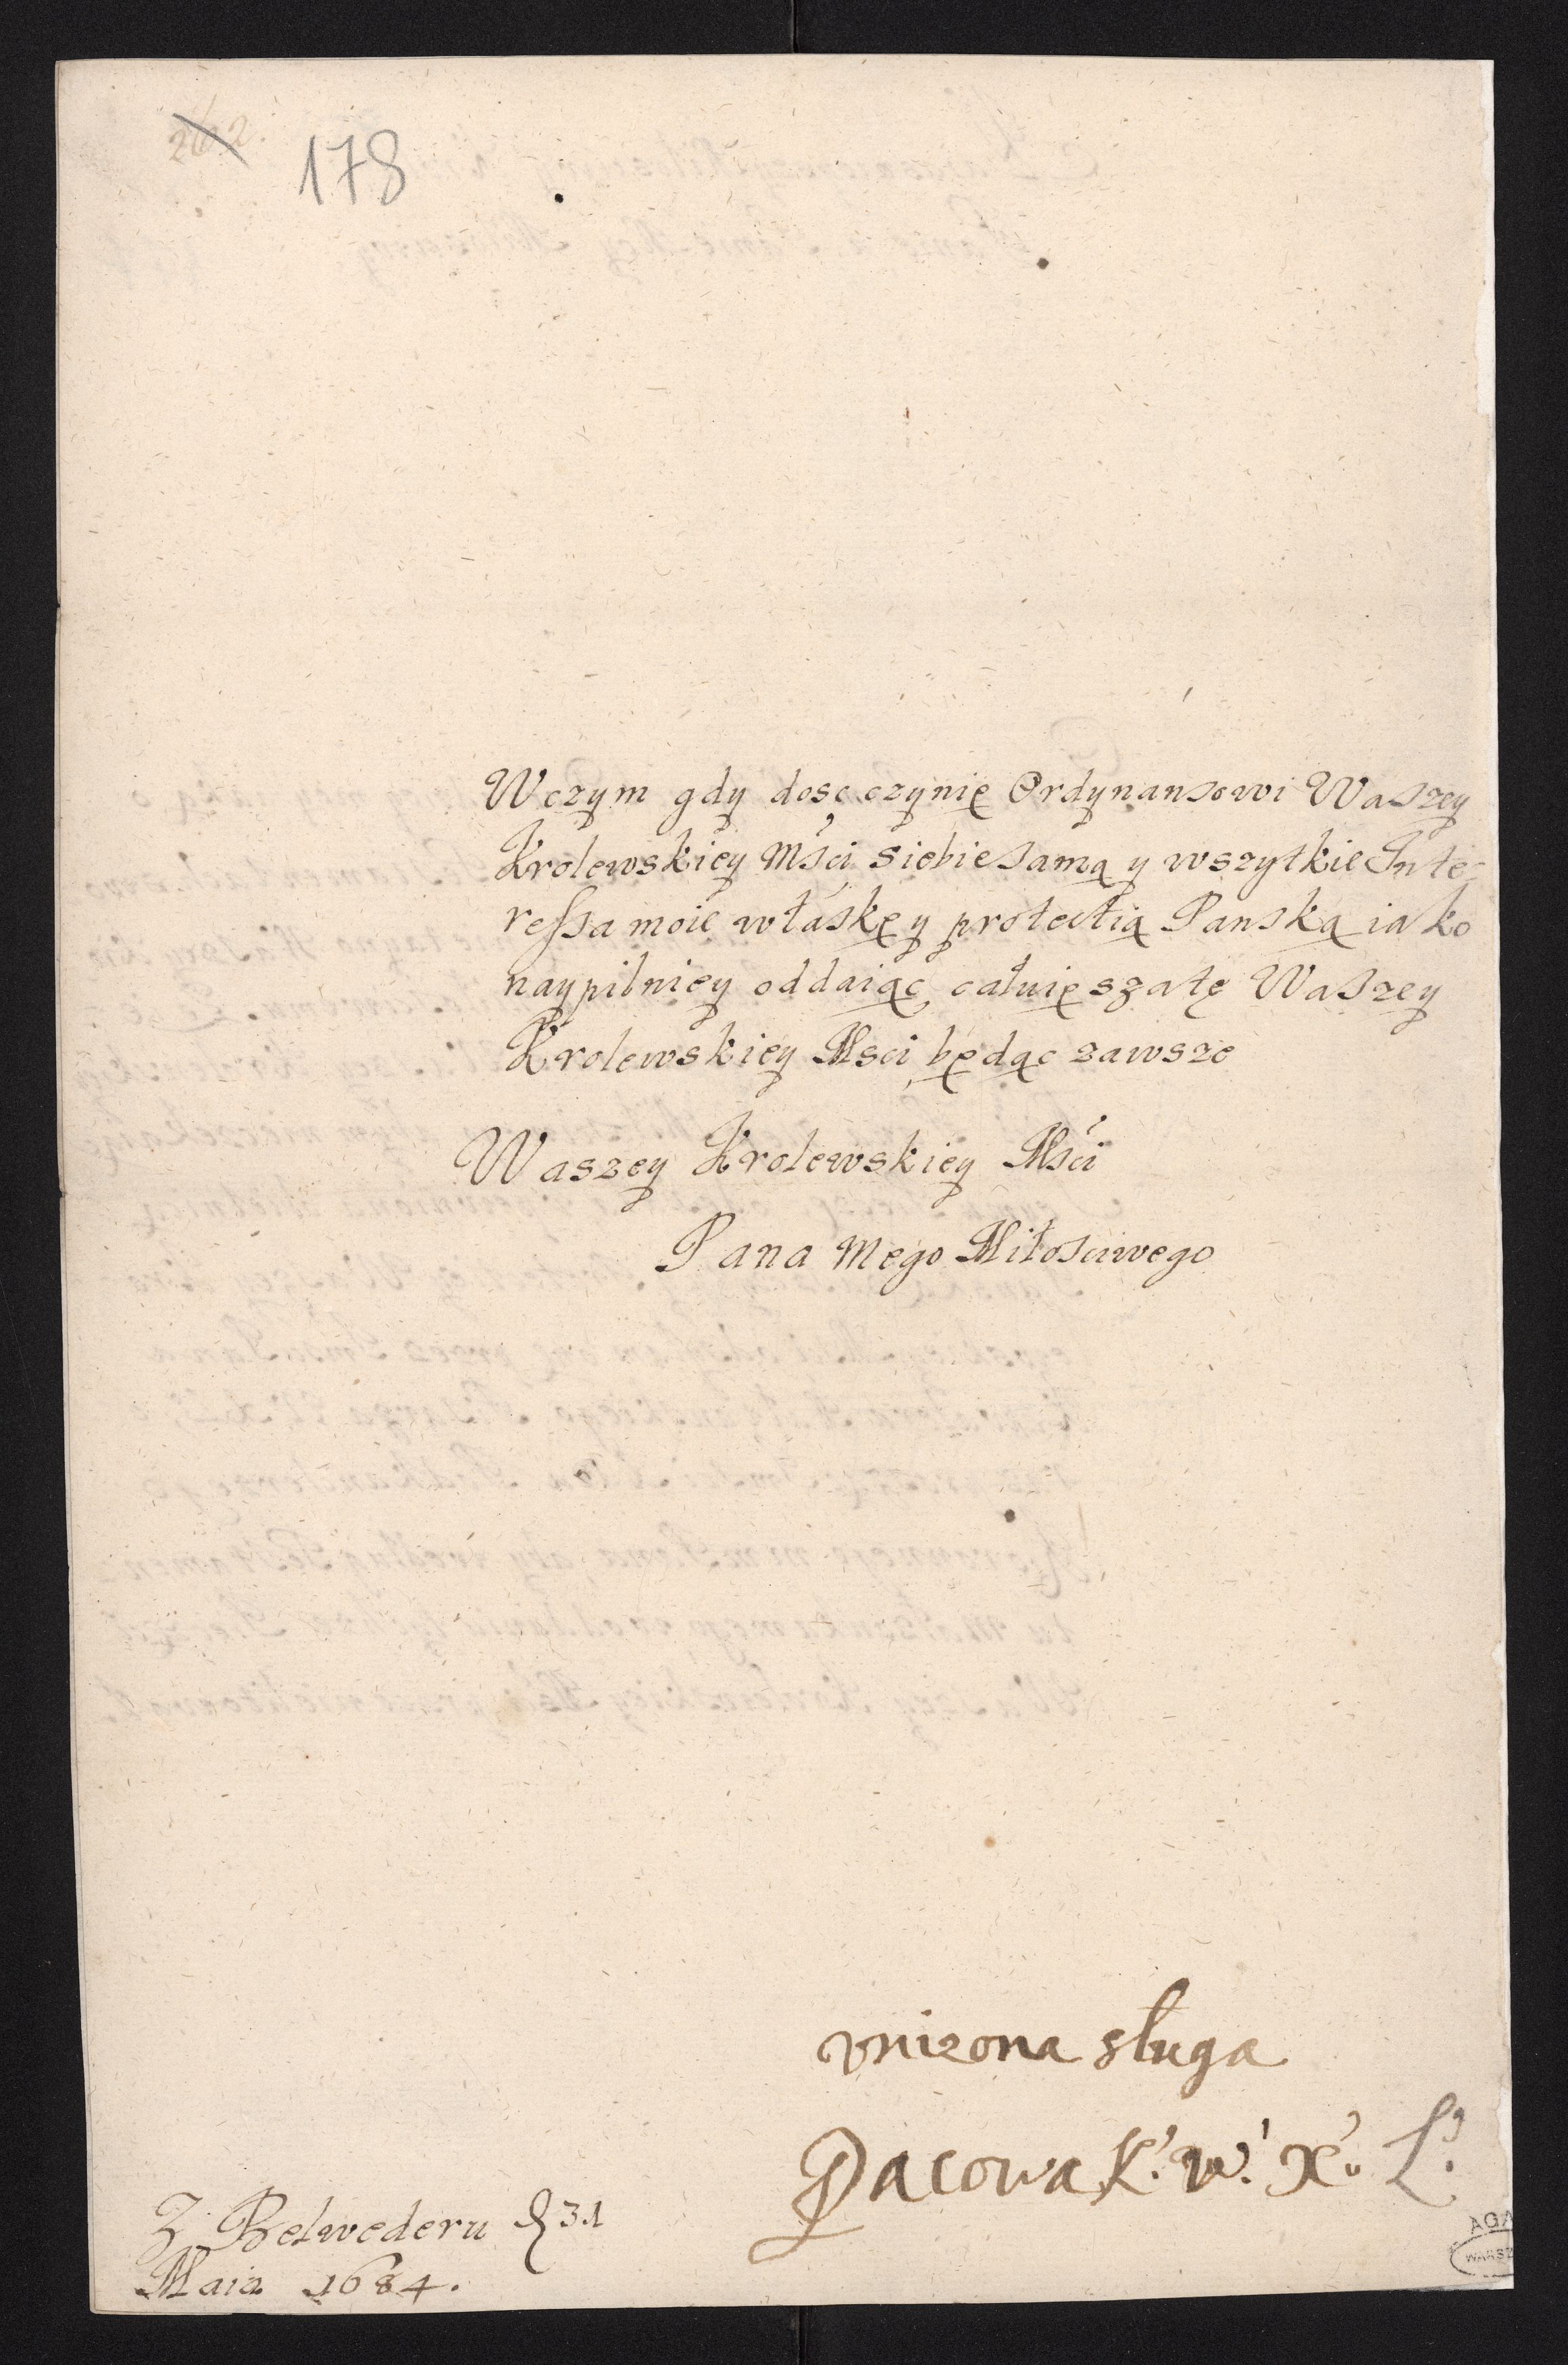 178
Wczym gdy dosc czynię Ordynansowi Waszey
Krolewskiey Mści siebie samą y wszytkie Inte-
ressa moie w łaskę y protectią Panską iako
naypilniey oddaiąc całuię szatę Waszey
Krolewskiey Msci będąc zawsze
Waszey Krolewskiey Mści
Pana mego Miłosciwego
vnizona sługa
Pacowa K. W. X. L.
Z Belwederu D 31
Maia 1684.
AGA
WARSZ